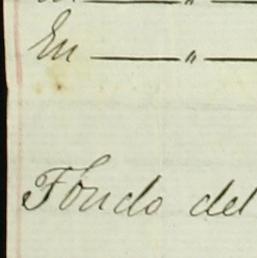 En — " —
Fondo del